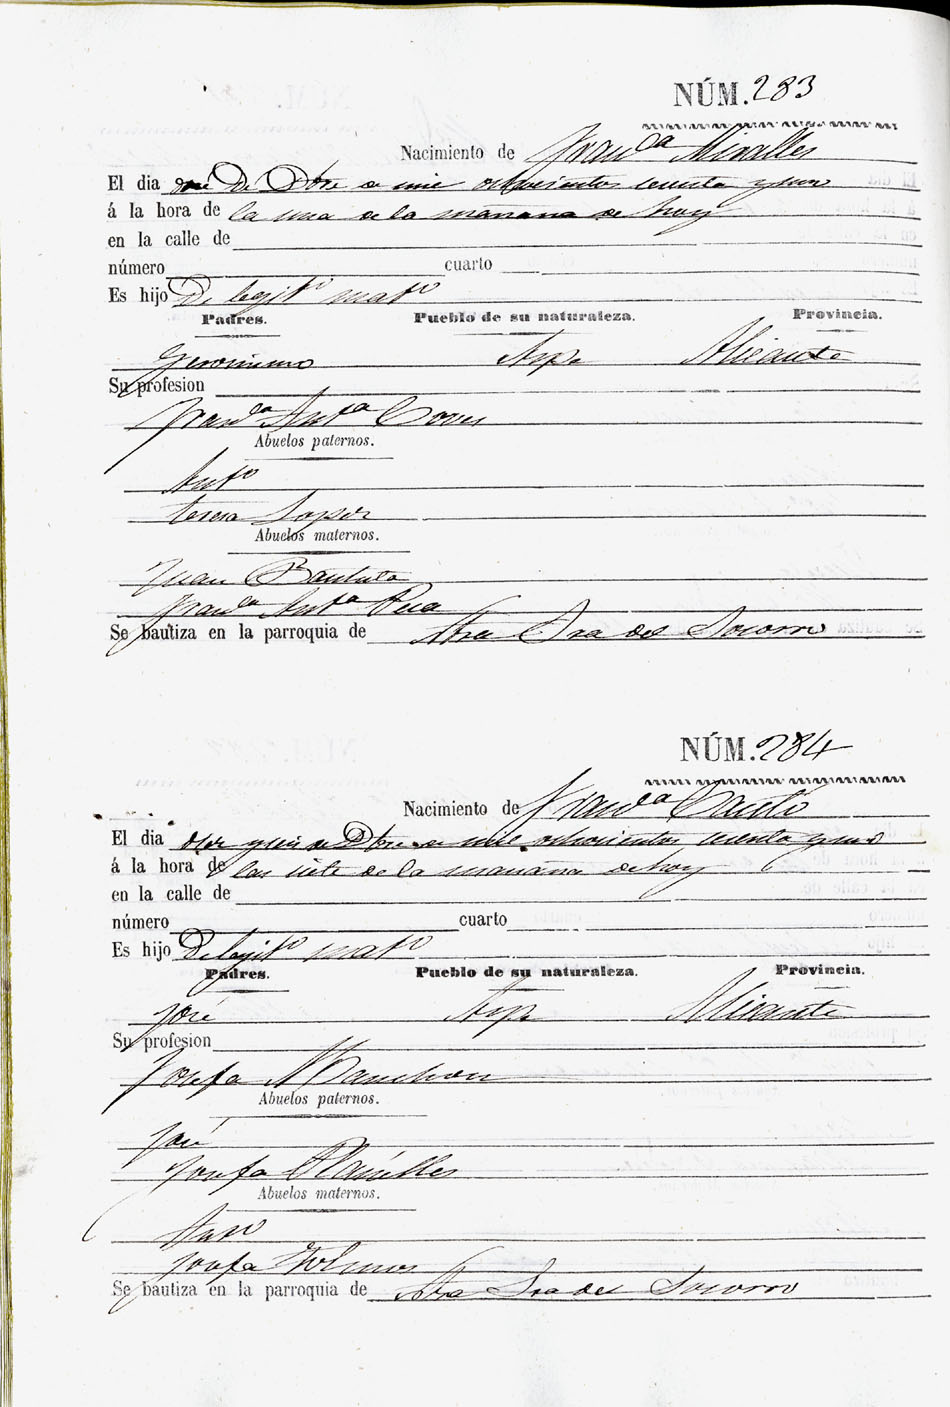 NÚM. 283
Nacimiento de Franca Miralles
El dia doce de Dbre de mil ochocientos sesenta y uno
á la hora de la una de la mañana de hoy
en la calle de
número cuarto
Es hijo de legito mato
Padres. Pueblo de su naturaleza. Provincia.
Geronimo Aspe Alicante
Su profesion
Franca Anta Cerves
Abuelos paternos.
Anto
Teresa Soper
Abuelos maternos.
Juan Bautista
Franca Anta
Se bautiza en la parroquia de Ntra Sra del Socorro
NÚM. 284
Nacimiento de Franca Cantó
El dia diez y seis de Dbre de mil ochocientos sesenta y uno
á la hora de las siete de la mañana de hoy
en la calle de
número cuarto
Es hijo De legito mato
Padres. Pueblo de su naturaleza. Provincia.
José Aspe Alicante
Su profesion
Josefa
Abuelos paternos.
José
Josefa Miralles
Abuelos maternos.
Anto
Josefa
Se bautiza en la parroquia de Ntra Sra del Socorro